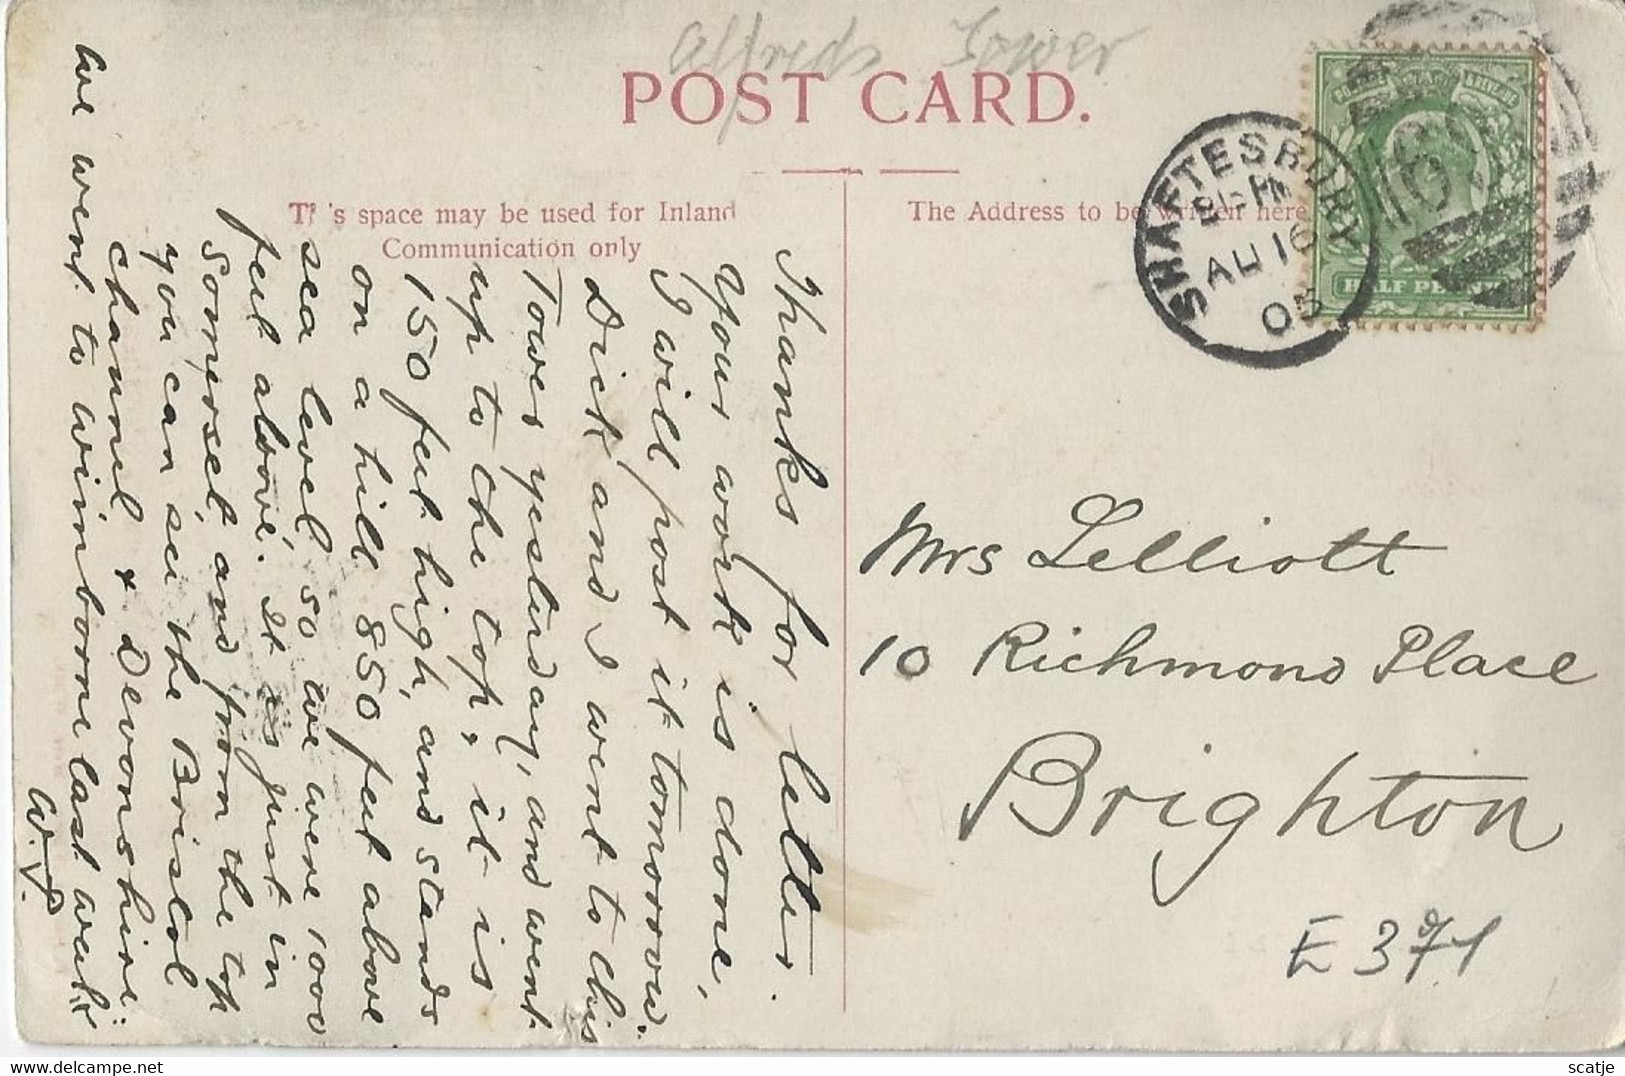 Alfreds Tower
POST CARD.
This space may be used for Inland
Communication only
The Address to be written here
SHAFTESBURY
AU 16
05
HALF PENNY
Thanks for letter.
Your work is done,
I will post it tomorrow.
Dick and I went to this
Tower yesterday, and went
up to the top, it is
150 feet high, and stands
on a hill 850 feet above
sea level so we were 1000
feet above. It is just in
Somerset, and from the top
you can see the Bristol
channel & Devonshire.
We went to Wimborne last week
Mrs Lelliott
10 Richmond Place
Brighton
E 371
scatje